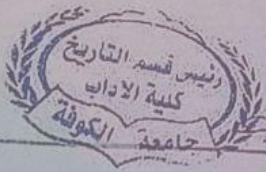 رئيس قسم التاريخ
كلية الاداب
جامعة الكوفة